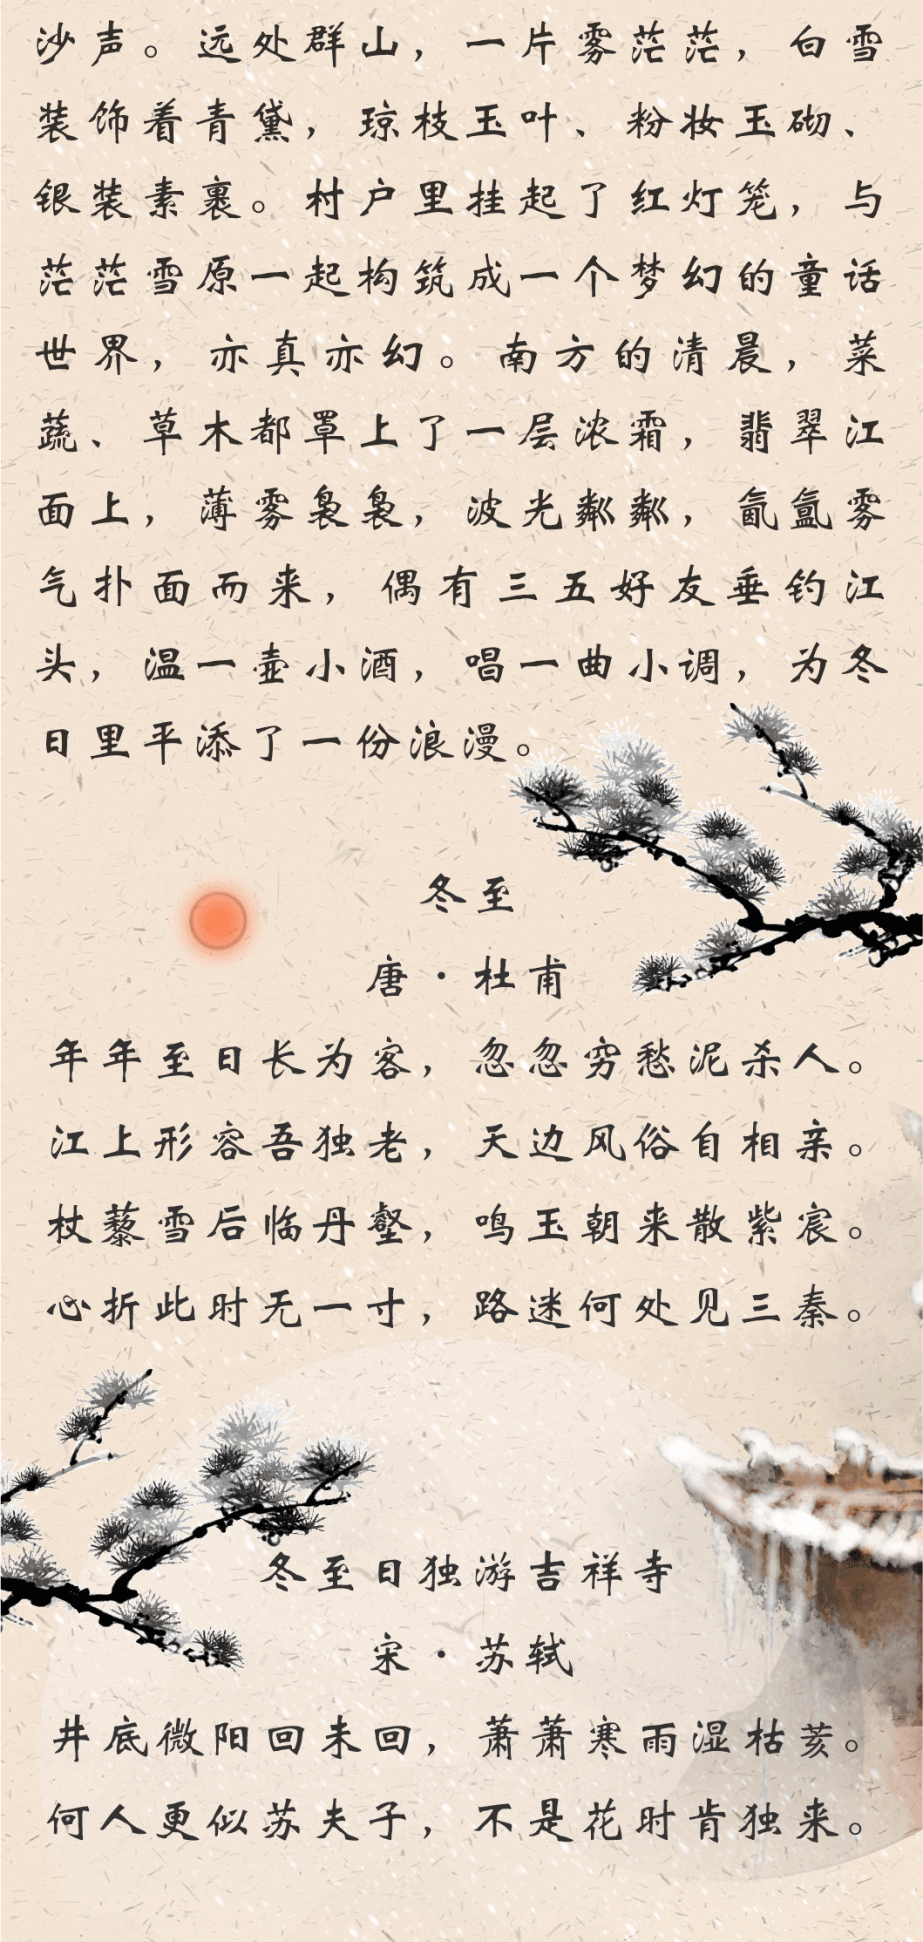 沙声。远处群山，一片雾茫茫，白雪
装饰着青黛，琼枝玉叶、粉妆玉砌、
银装素裹。村户里挂起了红灯笼，与
茫茫雪原一起构筑成一个梦幻的童话
世界，亦真亦幻。南方的清晨，菜
蔬、草木都罩上了一层浓霜，翡翠江
面上，薄雾袅袅，波光粼粼，氤氲雾
气扑面而来，偶有三五好友垂钓江
头，温一壶小酒，唱一曲小调，为冬
日里平添了一份浪漫。
冬至
唐·杜甫
年年至日长为客，忽忽穷愁泥杀人。
江上形容吾独老，天边风俗自相亲。
杖藜雪后临丹壑，鸣玉朝来散紫宸。
心折此时无一寸，路迷何处见三秦。
冬至日独游吉祥寺
宋·苏轼
井底微阳回未回，萧萧寒雨湿枯荄。
何人更似苏夫子，不是花时肯独来。